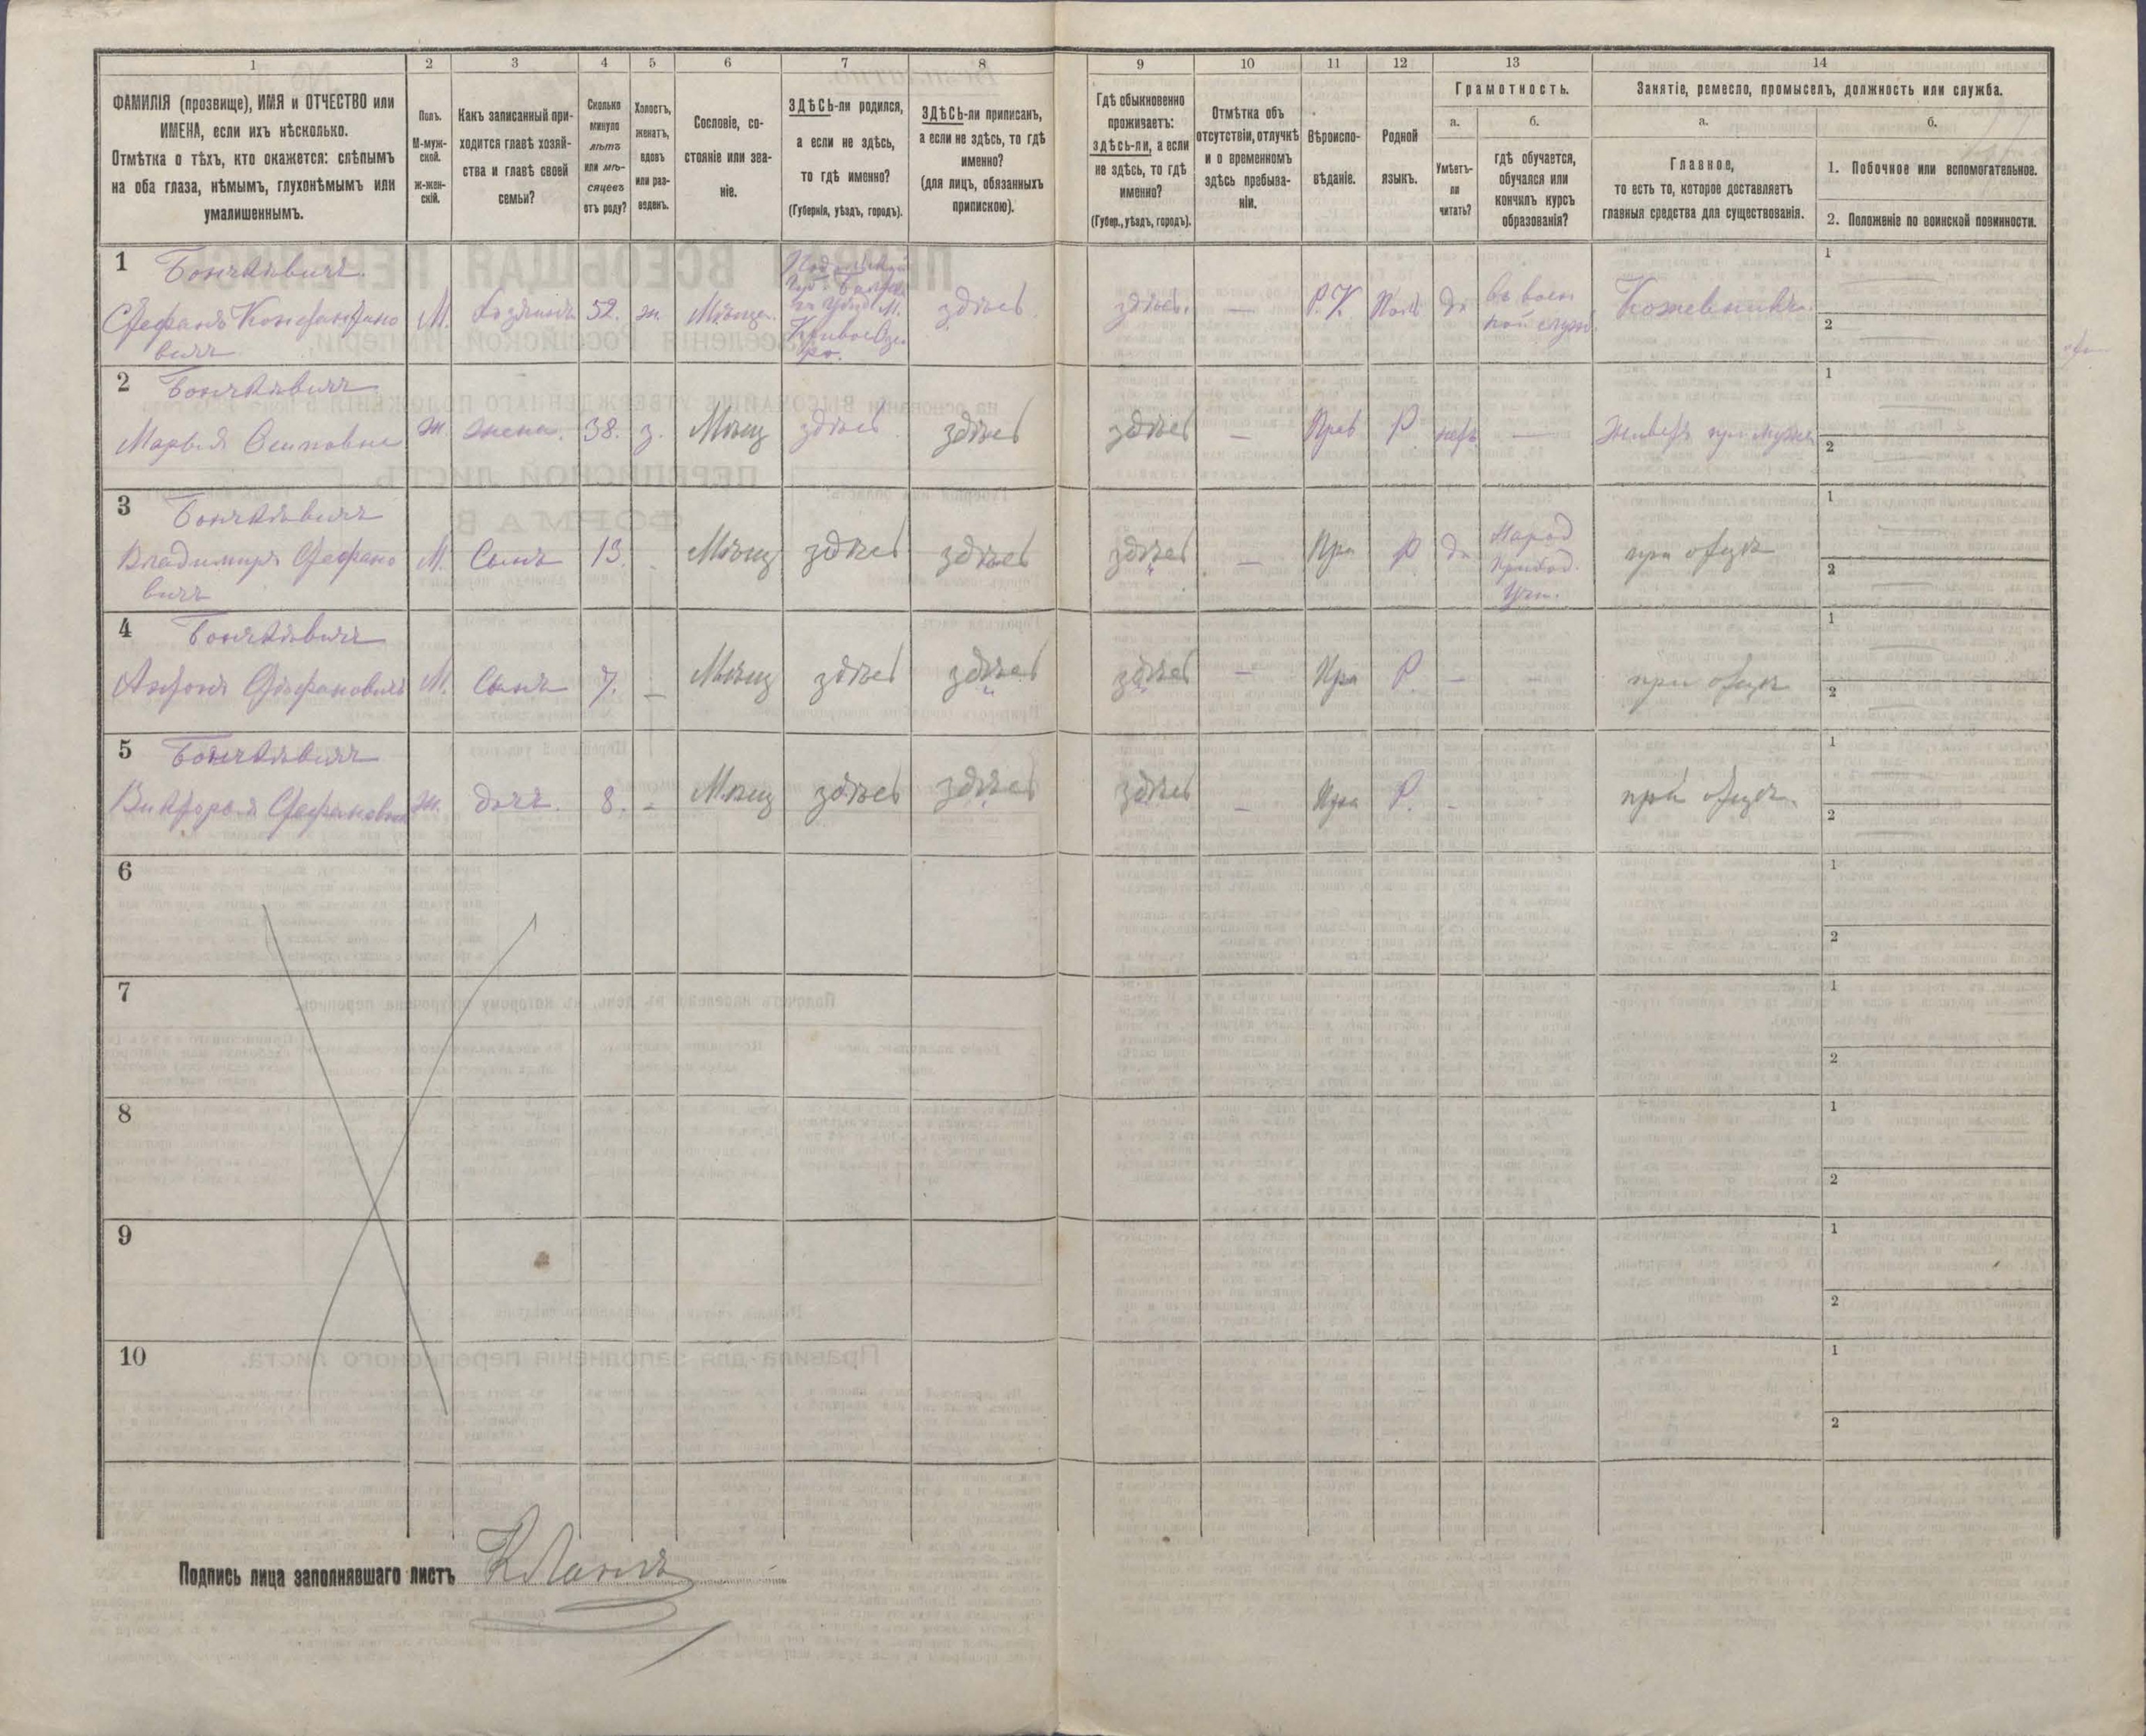 1 2 3 4 5 6 7 8 9 10 11 12 13 14
ФАМИЛІЯ (прозвище), ИМЯ и ОТЧЕСТВО или
ИМЕНА, если ихъ нѣсколько.
Отмѣтка о тѣхъ, кто окажется: слѣпымъ
на оба глаза, нѣмымъ, глухонѣмымъ или
умалишеннымъ.
Полъ.
М-муж-
ской.
ж-жен-
скій.
Какъ записанный при-
ходится главѣ хозяй-
ства и главѣ своей
семьи?
Сколько
минуло
лѣтъ
или мѣ-
сяцевъ
отъ роду?
Холостъ,
женатъ,
вдовъ
или раз-
веденъ.
Сословіе, со-
стояніе или зва-
ніе.
ЗДѢСЬ-ли родился,
а если не здѣсь,
то гдѣ именно?
(Губернія, уѣздъ, городъ).
ЗДѢСЬ-ли приписанъ,
а если не здѣсь, то гдѣ
именно?
(для лицъ, обязанныхъ
припискою).
Гдѣ обыкновенно
проживаетъ:
здѣсь-ли, а если
не здѣсь, то гдѣ
именно?
(Губер., уѣздъ, городъ).
Отмѣтка объ
отсутствіи, отлучкѣ
и о временномъ
здѣсь пребыва-
ніи.
Вѣроиспо-
вѣданіе.
Родной
языкъ.
Грамотность.
а.
Умѣетъ-
ли
читать?
б.
гдѣ обучается,
обучался или
кончилъ курсъ
образованія?
Занятіе, ремесло, промыселъ, должность или служба.
а.
Главное,
то есть то, которое доставляетъ
главныя средства для существованія.
б.
1. Побочное или вспомогательное.
2. Положеніе по воинской повинности.
1 Стефанъ Константино
вичъ
М. Хозяинъ 52. ж Мѣщан. здѣсь здѣсь. — Р.К. Пол да въ воен
ной служ. Кожевникъ. 1 2
2 Марья Осиповна ж. жена. 38. з. Мѣщ здѣсь здѣсь здѣсь — Прав Р нетъ — живетъ при мужѣ 1 2
3 Владимиръ Стефано
вичъ
М. Сынъ 13. Мѣщ здѣсь здѣсь здѣсь — Пра Р да Народ
приход.
Учи. при отцѣ 1 2
4 Антонъ Стефановичъ М. Сынъ 7. — Мѣщ здѣсь здѣсь здѣсь — Пра Р. — при отцѣ 1 2
5 Викторья Стефановна ж. дочь. 8. — Мѣщ здѣсь здѣсь здѣсь — Пра Р. - при отцѣ 1 2
6 1 2
7 1 2
8 1 2
9 1 2
10 1 2
Подпись лица заполнявшаго листъ